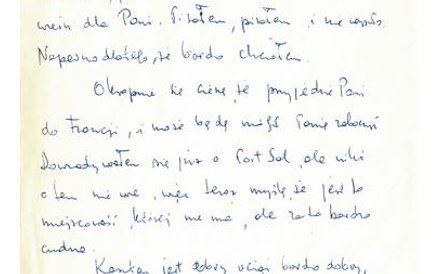 dla Pani. Pisałem, pisałem, i nic
że bardzo chciałem.
Okropnie się cieszę, że przyjedzie Pani
do Francji, i może będę mógł Panią zobaczyć
Dowiadywałem się już o Port Sol, ale nikt
o tem nie wie, więc teraz myślę, że jest to
miejscowość, której nie ma, ale za to bardzo
cudna.
jest dobry, bardzo dobry,